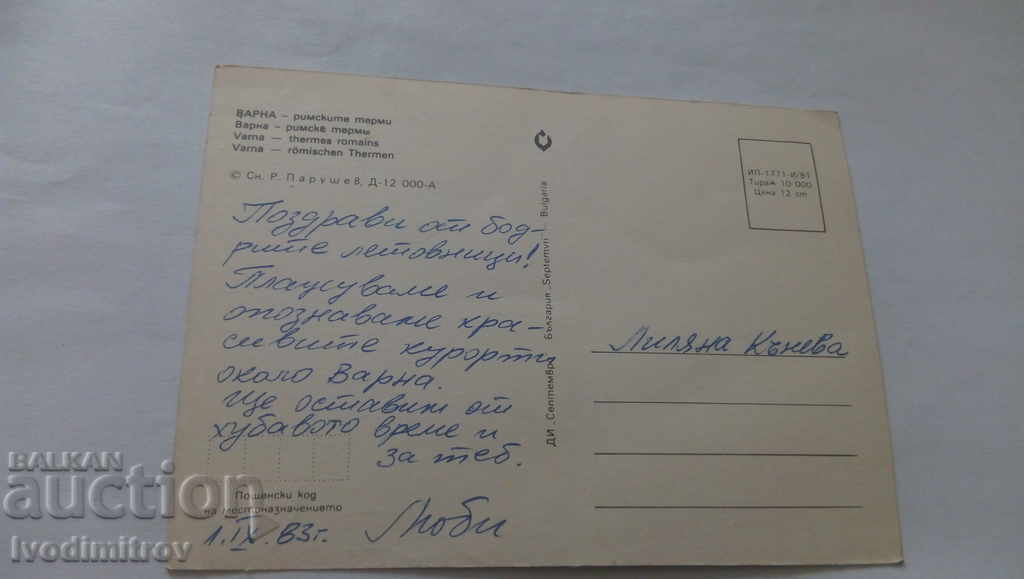 ВАРНА — римските терми
Варна — римске термы
Varna — thermes romains
Varna — römischen Thermen
© Сн. Р. Парушев, Д-12 000-А
Поздрави от бод-
рите летовници!
Плажуваме и
опознаваме кра-
сивите курорти
около Варна.
Ще оставим от
хубавото време и
за теб.
Пощенски код
на местоназначението
1.IX.83г.
Люби
ДИ „Септември" България „Septemvri" Bulgaria
ИП-1771-И/81
Тираж 10 000
Цена 12 ст
Лиляна Кънева
BALKAN
auction
Ivodimitrov